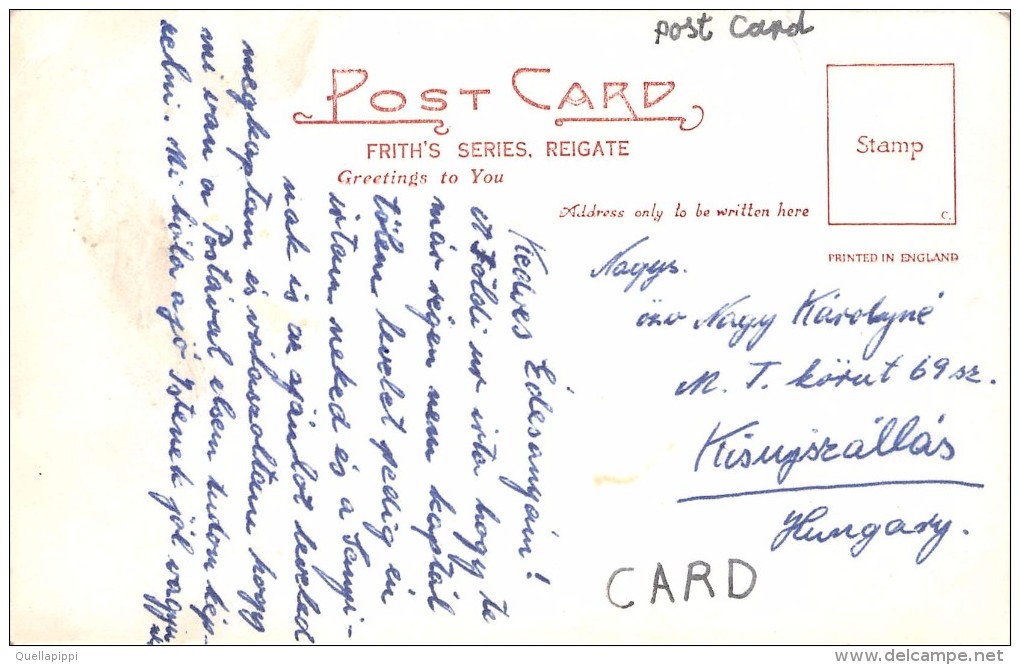 Post Card
POST CARD
FRITH'S SERIES, REIGATE
Greetings to You
Address only to be written here
Stamp
C.
PRINTED IN ENGLAND
Nagys.
özv Nagy Károlyné
M. T. körut 69 sz.
Kisujszállás
Hungary.
CARD
Kedves Édesanyám!
Földi ur irta hogy te
már régen nem kaptál
tölem levelet pedig én
irtam neked és a Sanyi-
nak is az ajánlot leveled
megkaptam és válaszoltam hogy
mi van a Postával elsem tudom kép-
zelni. Mi hála a jó Istenek jól vagyu
nk
Quellapippi
delcampe.net